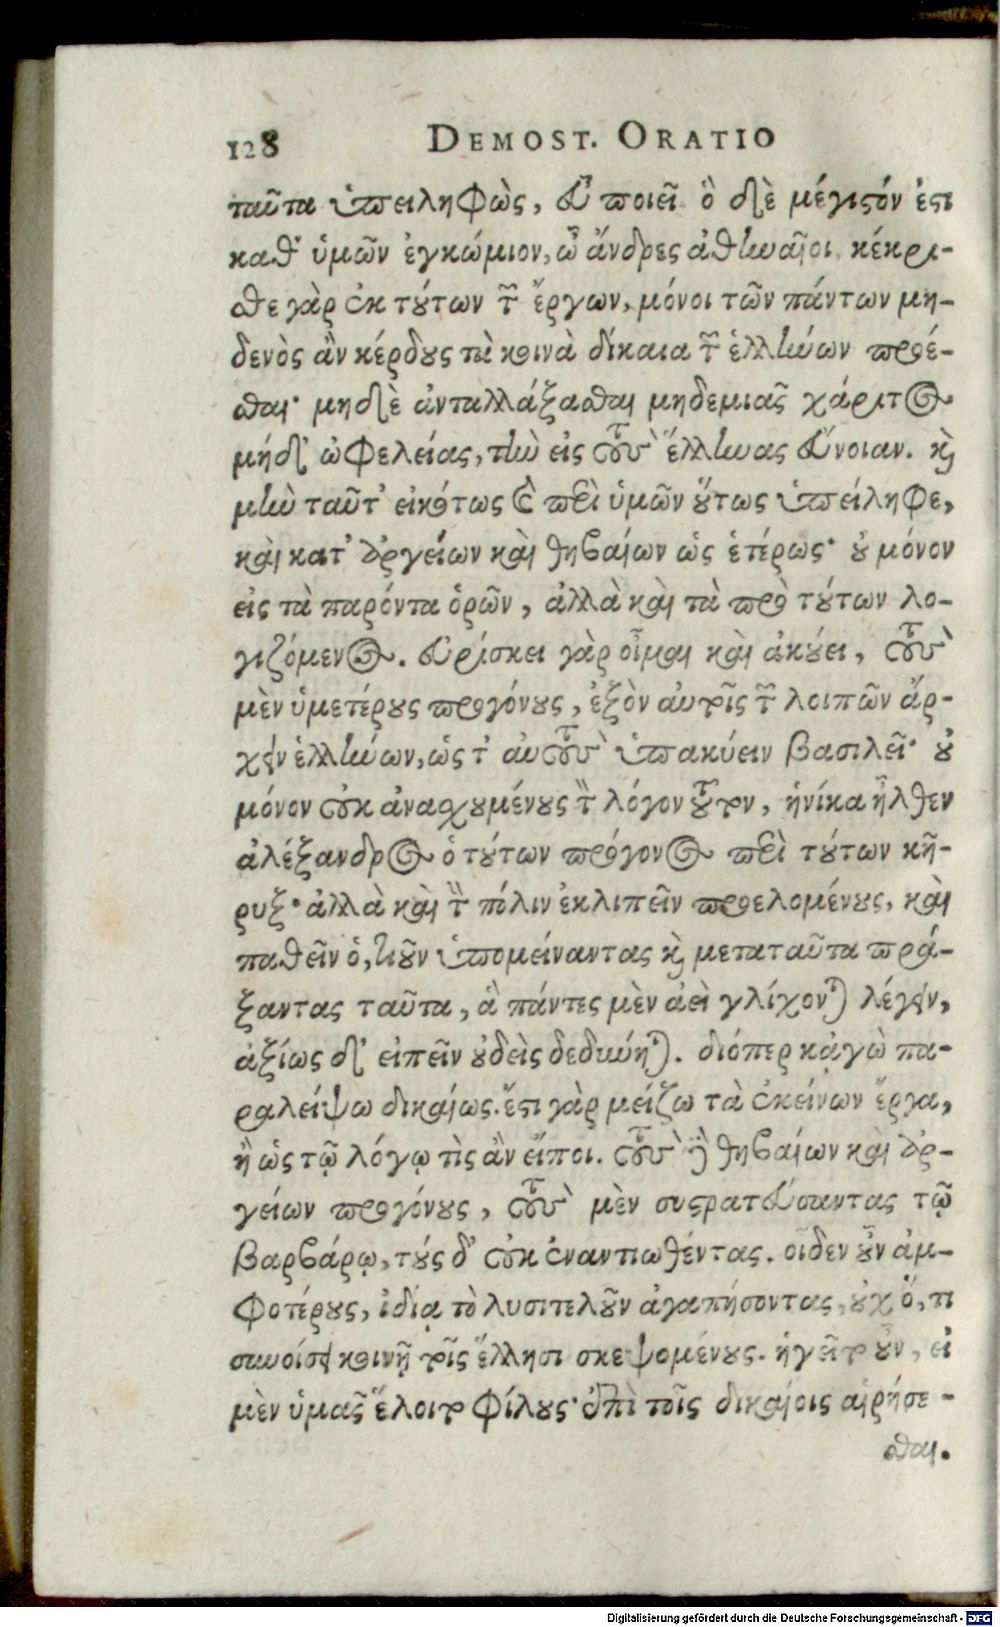 128 DEMOST. ORATIO
ταῦτα ὑπειληφὼς, εὖ ποιεῖ. ὃ δὲ μέγιστόν ἐστι
καθ' ὑμῶν ἐγκώμιον, ὦ ἄνδρες ἀθηναῖοι, κέκρι-
σθε γὰρ ἐκ τούτων τῶν ἔργων, μόνοι τῶν πάντων μη-
δενὸς ἂν κέρδους τὰ κοινὰ δίκαια τῶν ἑλλήνων προέ-
σθαι· μηδὲ ἀνταλλάξασθαι μηδεμιᾶς χάριτος
μήδ' ὠφελείας, τὴν εἰς τοὺς ἕλληνας εὔνοιαν. καὶ
μὴν ταῦτ' εἰκότως καὶ περὶ ὑμῶν οὕτως ὑπείληφε,
καὶ κατ' ἀργείων καὶ θηβαίων ὡς ἑτέρως· οὐ μόνον
εἰς τὰ παρόντα ὁρῶν, ἀλλὰ καὶ τὰ πρὸ τούτων λο-
γιζόμενος. εὑρίσκει γὰρ οἶμαι καὶ ἀκούει, τοὺς
μὲν ὑμετέρους προγόνους, ἐξὸν αὐτοῖς τῶν λοιπῶν ἄρ-
χειν ἑλλήνων, ὡς τ' αὐτοὺς ὑπακούειν βασιλεῖ· οὐ
μόνον οὐκ ἀνασχομένους τὸν λόγον τοῦτον, ἡνίκα ἦλθεν
ἀλέξανδρος ὁ τούτων πρόγονος περὶ τούτων κῆ-
ρυξ· ἀλλὰ καὶ τὴν πόλιν ἐκλιπεῖν προελομένους, καὶ
παθεῖν ὁ, τιοῦν ὑπομείναντας καὶ μεταταῦτα πρά-
ξαντας ταῦτα, ἃ πάντες μὲν ἀεὶ γλίχονται λέγειν,
ἀξίως δ' εἰπεῖν οὐδεὶς δεδύνηται. διόπερ κᾀγὼ πα-
ραλείψω δικαίως. ἔστι γὰρ μείζω τὰ ἐκείνων ἔργα,
ἢ ὡς τῷ λόγῳ τὶς ἂν εἴποι. τοὺς δὲ θηβαίων καὶ ἀρ-
γείων προγόνους, τοὺς μὲν συστρατεύσαντας τῷ
βαρβάρῳ, τούς δ' οὐκ ἐναντιωθέντας. οἶδεν οὖν ἀμ-
φοτέρους, ἰδίᾳ τὸ λυσιτελοῦν ἀγαπήσοντας, οὐχ ὅ, τι
συνοίσει κοινῇ τοῖς ἕλλησι σκεψομένους. ἡγεῖτο οὖν, εἰ
μὲν ὑμᾶς ἕλοιτο φίλους· ἐπὶ τοῖς δικαίοις αἱρήσε-
σθαι.
Digitalisierung gefördert durch die Deutsche Forschungsgemeinschaft - DFG